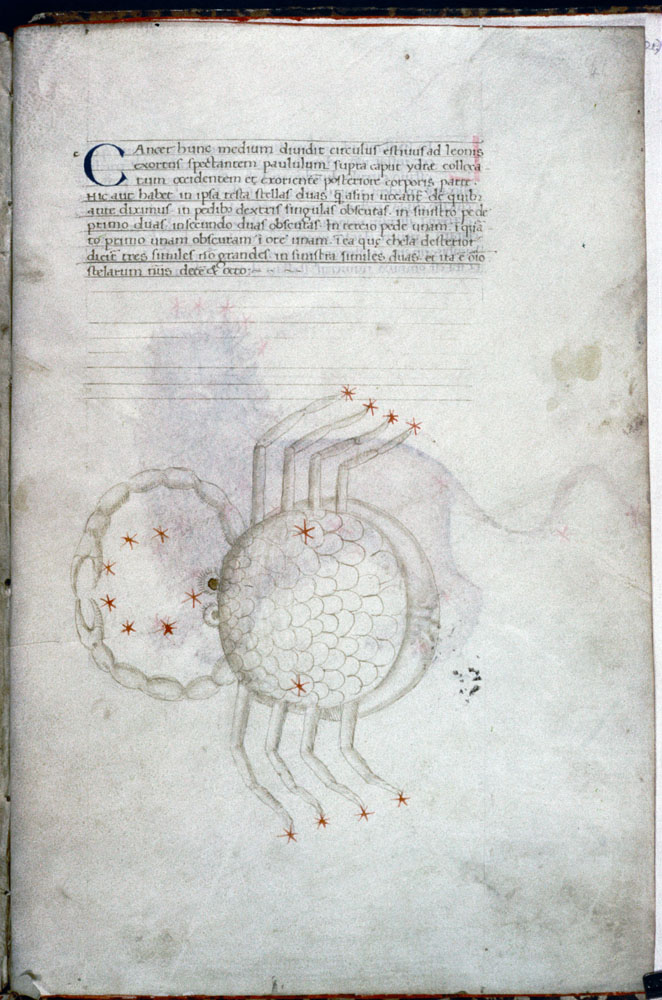 CAncer hunc medium diuidit circulus estiuus ad leonis
exortus spectantem paululum supra caput ydre colloca
tum occidentem et exorientē posteriore corporis parte.
Hic aut habet in ipsa testa stellas duas q asini uocant̄ de quib
ante diximus in pedibꝰ dextris singulas obscuras. in sinistro pede
primo duas. in secundo duas obscuras. In tercio pede unam. i qua
to primo unam obscuram i ore unam. i ea que chela dexterior
dicit̄ tres similes nō grandes. in sinistra similes duas. et ita ē oīo
stelarum nūs decē & octo: